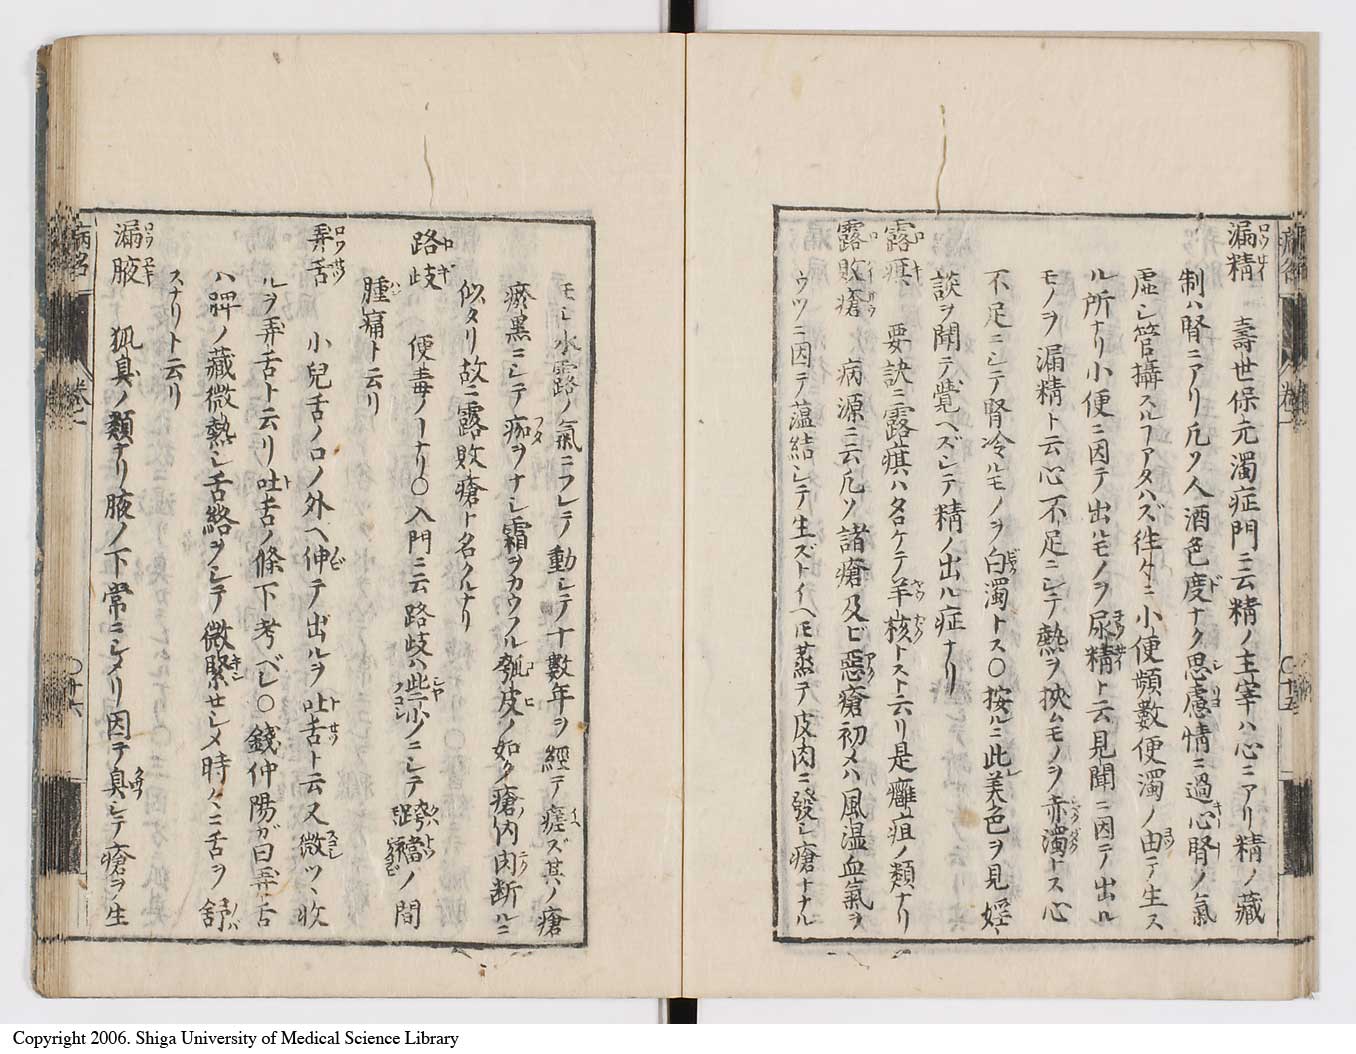 漏精 壽世保元濁症門ニ云精ノ主宰ハ心ニアリ精ノ藏
制ハ腎ニアリ凡ソ人酒色度ナク思慮情ニ過心腎ノ氣
虚シ管攝スルヿアタハズ徃々ニ小便頻數便濁ノ由テ生ス
ル所ナリ小便ニ因テ出ルモノヲ尿精ト云見聞ニ因テ出ル
モノヲ漏精ト云心不足ニシテ熱ヲ挾ムモノヲ赤濁トス心
不足ニシテ腎冷ルモノヲ白濁トス〇按ルニ此美色ヲ見婬
談ヲ聞テ覺ヘズシテ精ノ出ル症ナリ
露瘨 要訣ニ露瘨ハタロケテ羊核トストス云リ是癰疽ノ類ナリ
露敗瘡 病源ニ云凡ソ諸瘡及ビ惡瘡初メハ風温血氣ヲ
ウツニ因テ蕰結シテ生ズトイヘモ蒸テ皮肉ニ發シ瘡トナル
十五
モシ水露ノ氣ニフレテ動シテ十數年ヲ經テ瘥ズ其ノ瘡
瘀黒ニシテ痂ヲナシ霜ヲカウフル瓠皮ノ如ク瘡内肉断ルニ
似タリ故ニ露敗瘡ト名クルナリ
路歧 便毒ノヿナリ〇入門ニ云路歧ハ些少ニシテ跨襠ノ間
腫痛ト云リ
弄舌 小兒舌ノ口ノ外ヘ伸テ出ルヲ吐舌ト云又微ツヽ收
ルヲ弄舌ト云リ吐舌ノ條下考ベシ〇錢仲陽ガ曰弄舌
ハ脾ノ藏微熱シ舌絡ヲシテ微緊セシメ時々ニ舌ヲ舒
スナリト云リ
漏腋 狐臭ノ類ナリ腋ノ下常ニシメリ因テ臭シテ瘡ヲ生
病名
卷一
〇十六
Copyright 2006. Shiga University of Medical Science Library